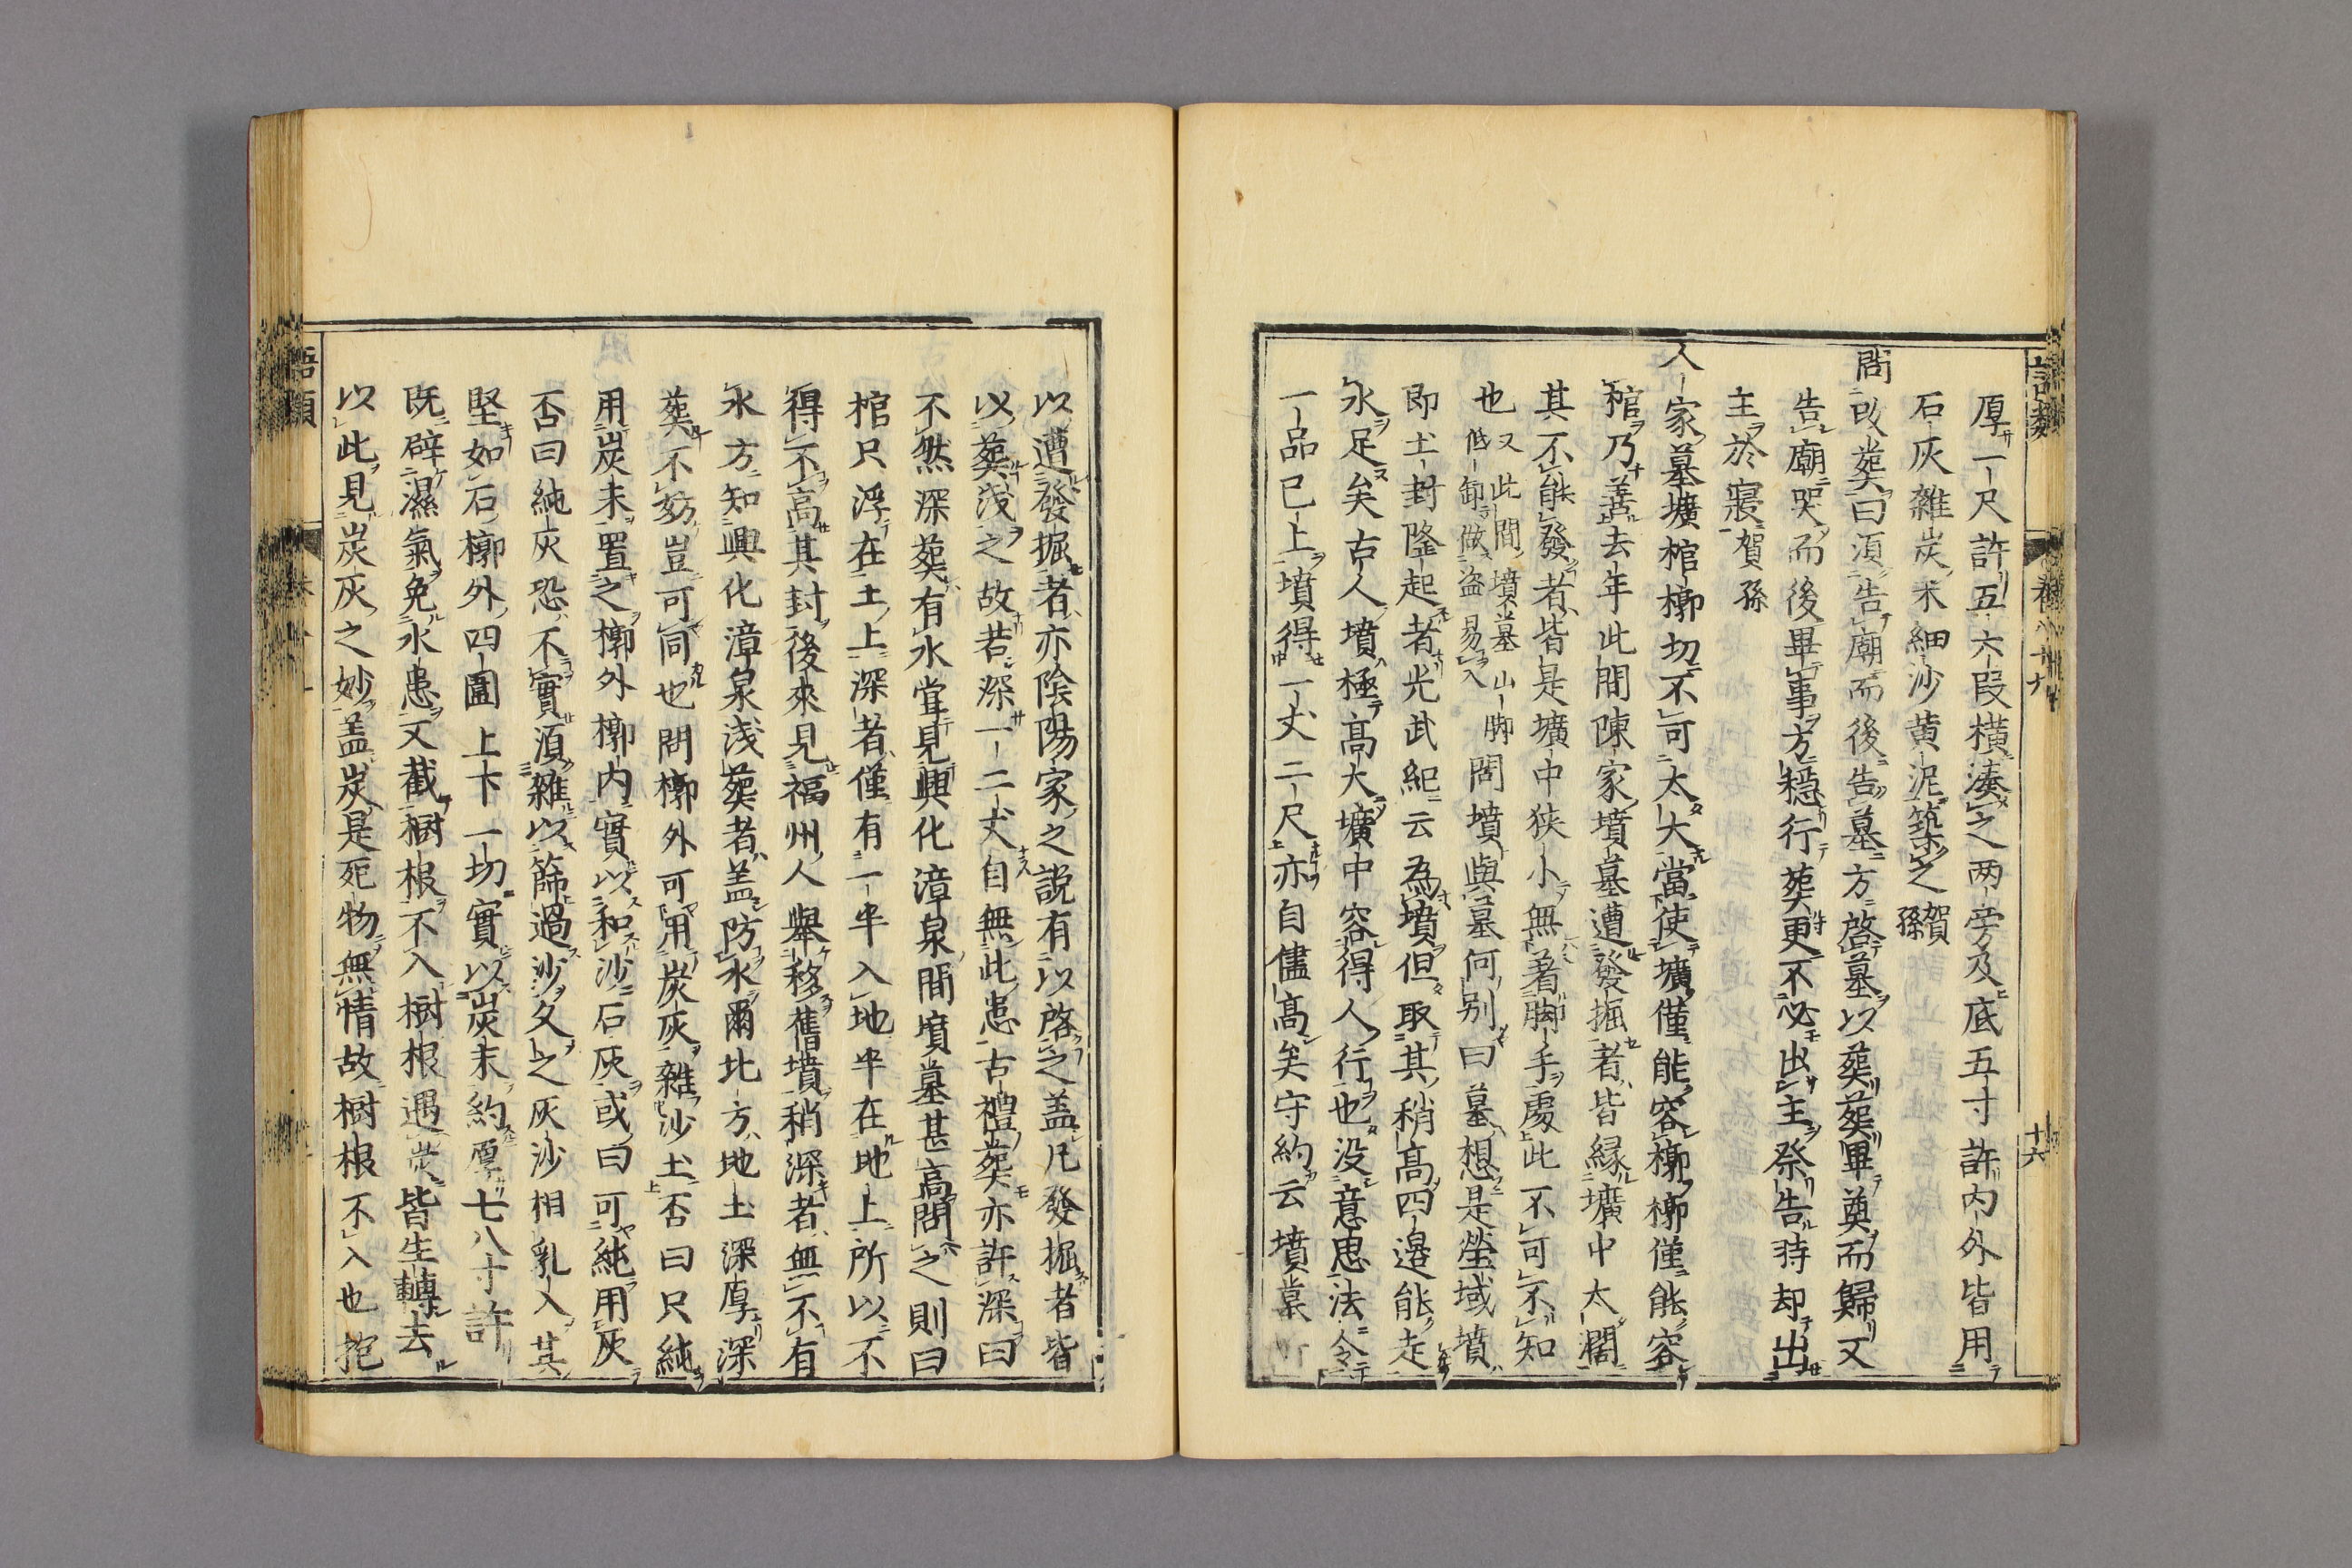 語類 卷八十九 十六
厚一尺許五六段橫湊之两旁及底五寸許內外皆用
石灰雜炭末細沙黃泥築之賀孫
問改葬曰須告廟而後告墓方啓墓以葬葬畢奠而歸又
告廟哭而後畢事方穩行葬更不必出主祭告時却出
主於寢賀孫
人家墓壙棺槨切不可太大當使壙僅能容槨槨僅能容
棺乃善去年此間陳家墳墓遭發掘者皆緣壙中太濶
其不能發者皆是壙中狹小無著脚手處此不可不知
也又此間墳墓山脚低卸做盜易入問墳與墓何别曰墓想是塋域墳
即土封隆起者光武紀云為墳但取其稍高四邉能走
水足矣古人墳極高大壙中容得人行也没意思法令
一品已上墳得一丈二尺亦自儘高矣守約云墳墓所
以遭發掘者亦陰陽家之說有以啓之盖凡發掘者皆
以葬淺之故若深一二丈自無此患古禮葬亦許深曰
不然深葬有水甞見興化漳泉間墳墓甚高問之則曰
棺只浮在土上深者僅有一半入地半在地上所以不
得不高其封後來見福州人舉移舊墳稍深者無不有
水方知興化漳泉淺葬者盖防水爾北方地土深厚深
葬不妨豈可同也問槨外可用炭灰雜沙土否曰只純
用炭末置之槨外槨内實以和沙石灰或曰可純用灰
否曰純灰恐不實須雜以篩過沙久之灰沙相乳入其
堅如石槨外四圍上下一切實以炭末約厚七八寸許
既辟濕氣免水患又截樹根不入樹根遇炭皆生轉去
以此見炭灰之妙盖炭是死物無情故樹根不入也抱
語類